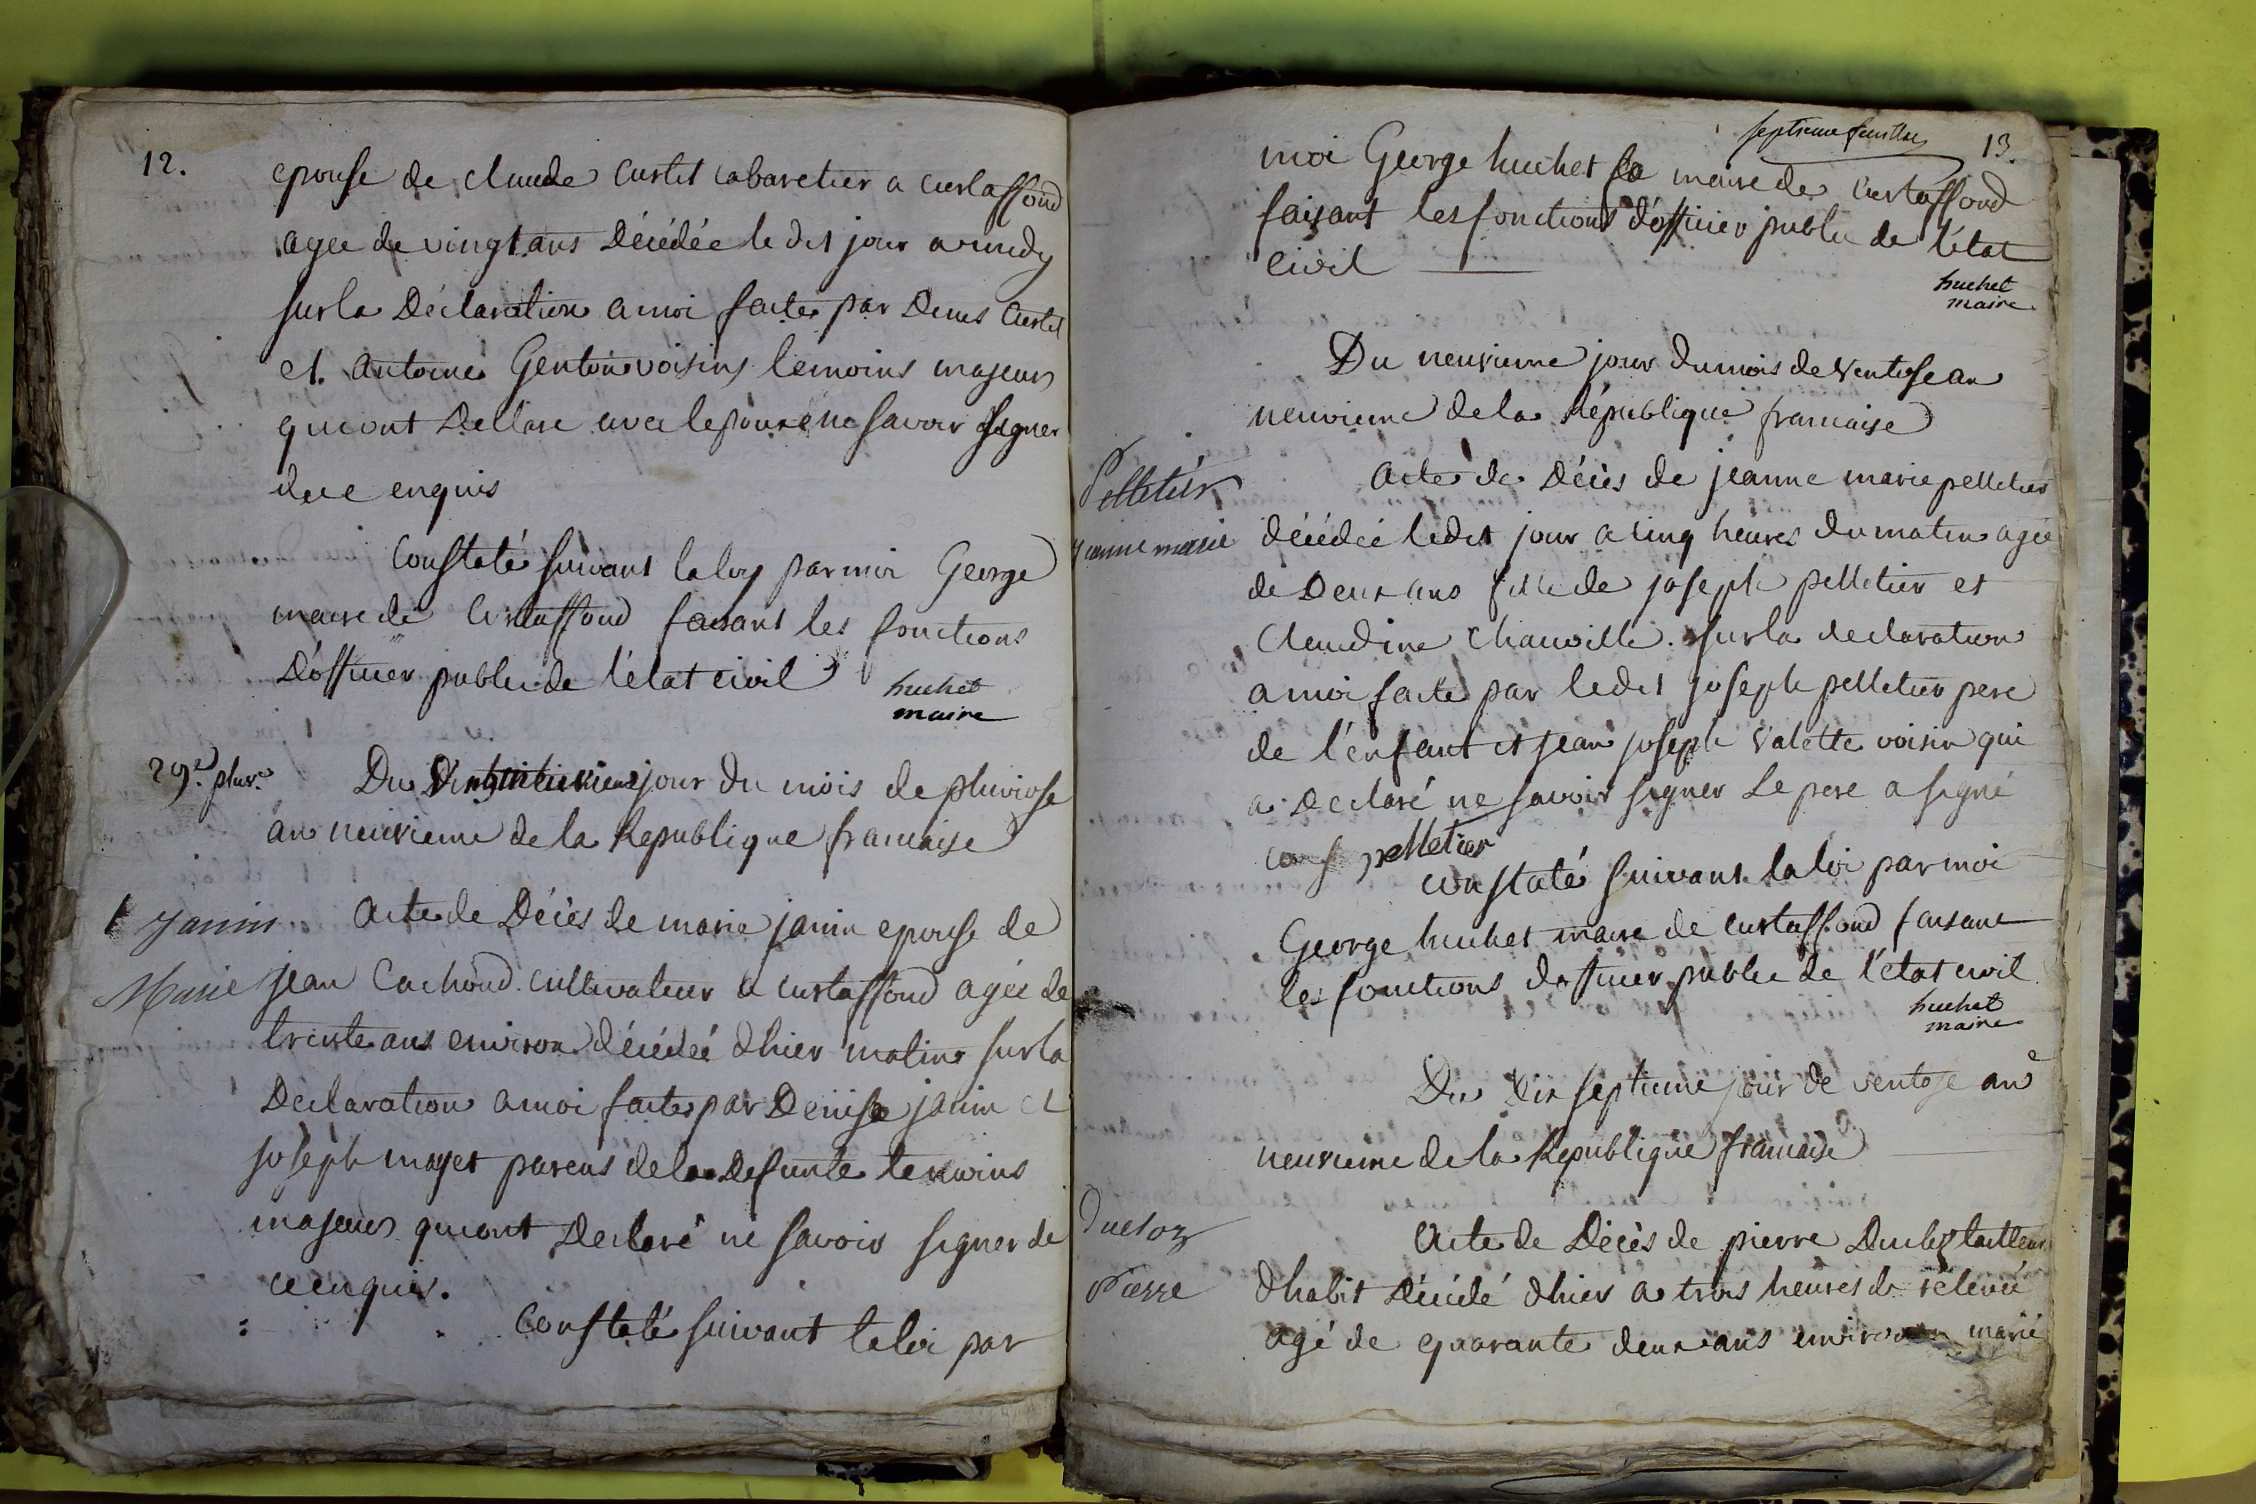 12.
epouse de claude curtet cabaretier a curtaffond
agée de vingt ans Décédée le dit jour a midy
sur la Déclaration a moi faite par Denis Curtet
et antoine Genton voisins temoins majeurs
qui ont Declaré avec lepoux ne savoir signer
de ce enquis
Constaté suivant la loy par moi George
maire de Curtaffond faisant les fonctions
D'officier public de l'état civil
huchet
maire
29.e pluv.e
Du Vingt neuvieme jour du mois de pluviose
an neuvieme de la Republique francaise
Janin
Marie
Acte de Décès de marie janin epouse de
jean Cachoud cultivateur a curtaffond agée de
trente ans environ décédée d'hier matin sur la
Declaration a moi faite par Denise janin et
joseph mayet parens de la Defunte temoins
majeurs qui ont Declaré ne savoir signer de
ce enquis.
Constaté suivant la loi par
septieme feuillet
13.
moi George huchet maire de Curtaffond
faisant les fonctions d'officier public de l'état
civil
huchet
maire
Du neuvieme jour du mois de Ventose an
neuvieme de la République francaise
Pelletier
jeanne marie
Acte de Décès de jeanne marie pelletier
décédée ledit jour a cinq heures du matin agée
de Deux ans fille de joseph pelletier et
Claudine Chanville. sur la declaration
a moi faite par ledit joseph pelletier pere
de l'enfant et jean joseph Valette voisin qui
a Declaré ne savoir signer Le pere a signé
pelletier
constaté suivant la loi par moi
George huchet maire de curtaffond faisant
les fonctions d'officier public de l'état civil
huchet
maire
Du Dix septieme jour de ventose an
neuvieme de la Republique francaise
Duclos
Pierre
Acte de Décès de pierre Duclos tailleur
d'habit Décédé d'hier a trois heures de relevée
agé de quarante deux ans environ marié